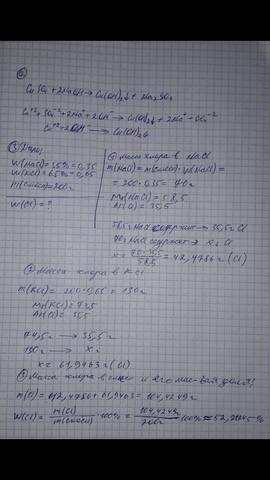 ②
CuSO₄ + 2NaOH → Cu(OH)₂↓ + Na₂SO₄
Cu⁺² + SO₄⁻² + 2Na⁺ + 2OH⁻ → Cu(OH)₂↓ + 2Na⁺ + SO₄⁻²
Cu⁺² + 2OH⁻ → Cu(OH)₂↓
③ Дано:
W(NaCl) = 35% = 0,35
W(KCl) = 65% = 0,65
m(смеси) = 200г
W(Cl) = ?
① Масса хлора в NaCl
m(NaCl) = m(смеси)·W(NaCl) =
= 200·0,35 = 70г
Mr(NaCl) = 58,5
Ar(Cl) = 35,5
NaCl содержит → 35,5г Cl
NaCl содержит → xг Cl
x = 70·35,5 / 58,5 = 42,4786г (Cl)
② Масса хлора в KCl
m(KCl) = 200·0,65 = 130г
Mr(KCl) = 74,5
Ar(Cl) = 35,5
74,5г → 35,5г
130г → xг
x = 61,9463г (Cl)
Масса хлора в смеси и его доля:
m(Cl) = 42,4786 + 61,9463 = 104,4249г
W(Cl) = m(Cl) / m(смеси) · 100% = 104,4249г / 200г · 100% ≈ 52,21245%